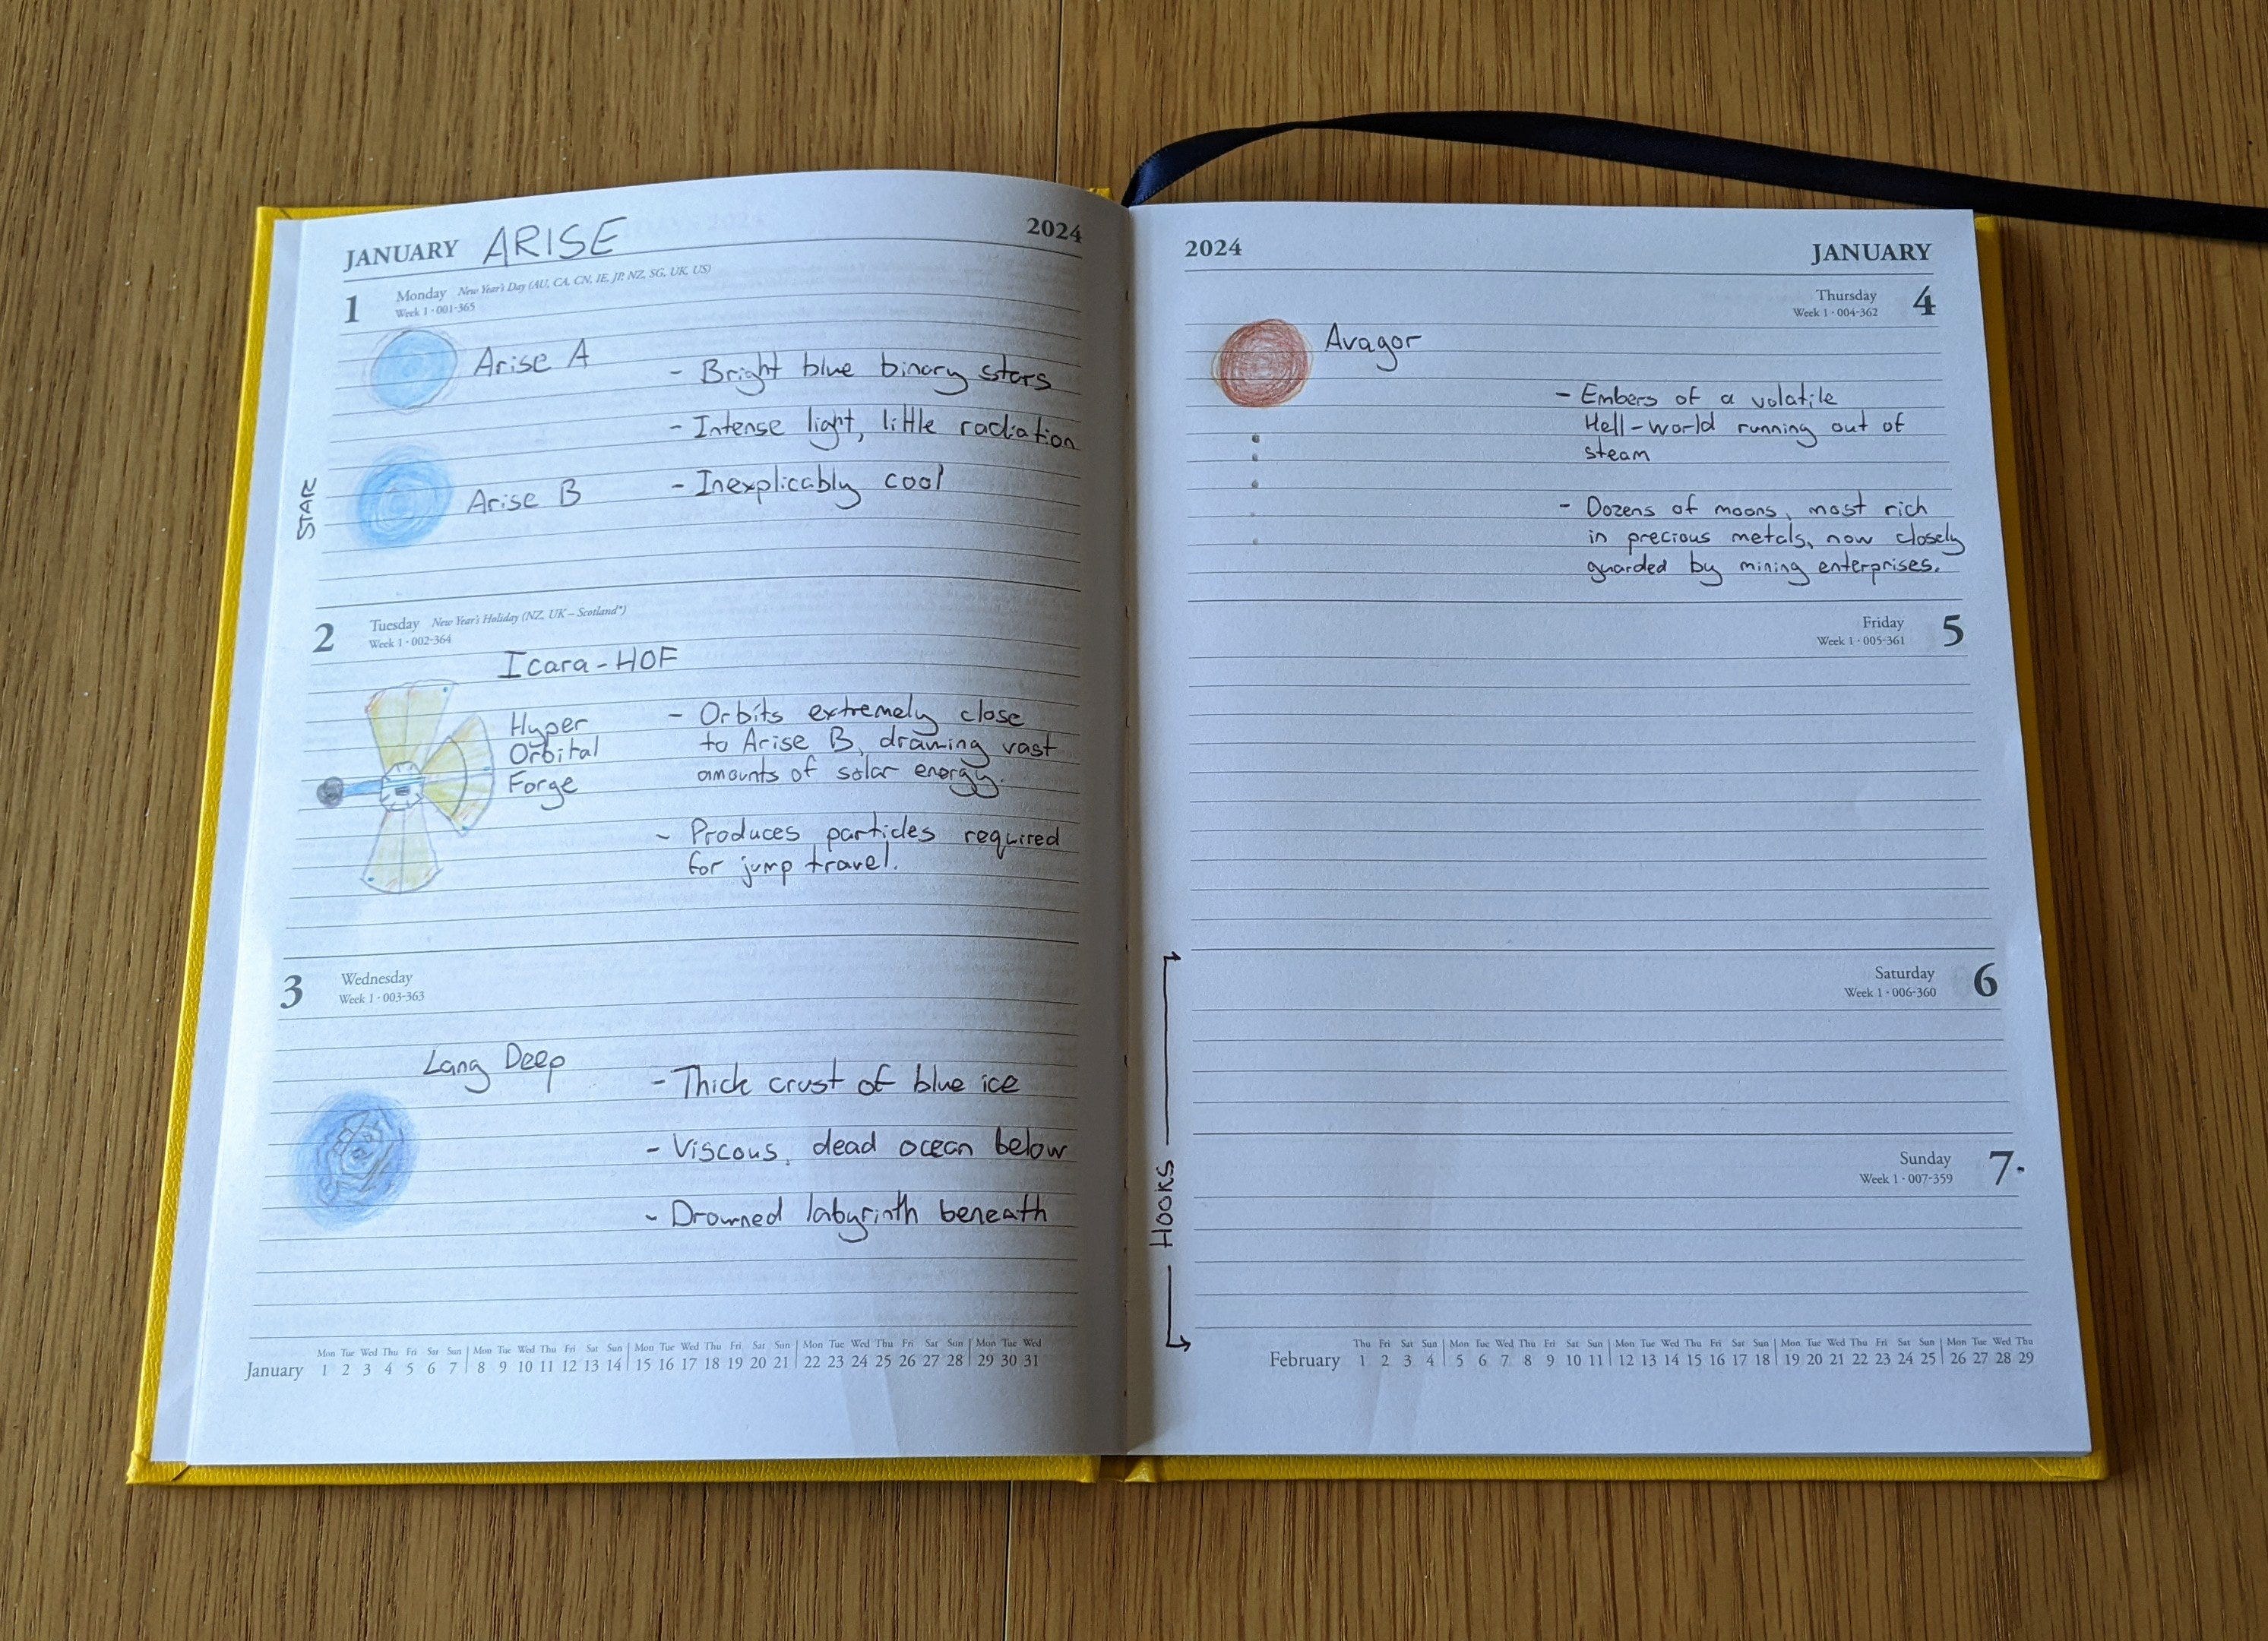 JANUARY ARISE 2024
1 Monday New Year's Day (AU, CA, CN, IE, JP, NZ, SG, UK, US)
Week 1 · 001-365
Arise A
- Bright blue binary stars
- Intense light, little radiation
STAR
Arise B
- Inexplicably cool
2 Tuesday New Year's Holiday (NZ, UK – Scotland*)
Week 1 · 002-364
Icara-HOF
Hyper
Orbital
Forge
- Orbits extremely close
to Arise B, drawing vast
amounts of solar energy.
- Produces particles required
for jump travel.
3 Wednesday
Week 1 · 003-363
Lang Deep
- Thick crust of blue ice
- Viscous, dead ocean below
- Drowned labyrinth beneath
Mon Tue Wed Thu Fri Sat Sun Mon Tue Wed Thu Fri Sat Sun Mon Tue Wed Thu Fri Sat Sun Mon Tue Wed Thu Fri Sat Sun Mon Tue Wed
January 1 2 3 4 5 6 7 8 9 10 11 12 13 14 15 16 17 18 19 20 21 22 23 24 25 26 27 28 29 30 31
2024 JANUARY
Thursday 4
Week 1 · 004-362
Avagor
- Embers of a volatile
Hell-world running out of
steam
- Dozens of moons, most rich
in precious metals, now closely
guarded by mining enterprises.
Friday 5
Week 1 · 005-361
Saturday 6
Week 1 · 006-360
HOOKS
Sunday 7
Week 1 · 007-359
Thu Fri Sat Sun Mon Tue Wed Thu Fri Sat Sun Mon Tue Wed Thu Fri Sat Sun Mon Tue Wed Thu Fri Sat Sun Mon Tue Wed Thu
February 1 2 3 4 5 6 7 8 9 10 11 12 13 14 15 16 17 18 19 20 21 22 23 24 25 26 27 28 29